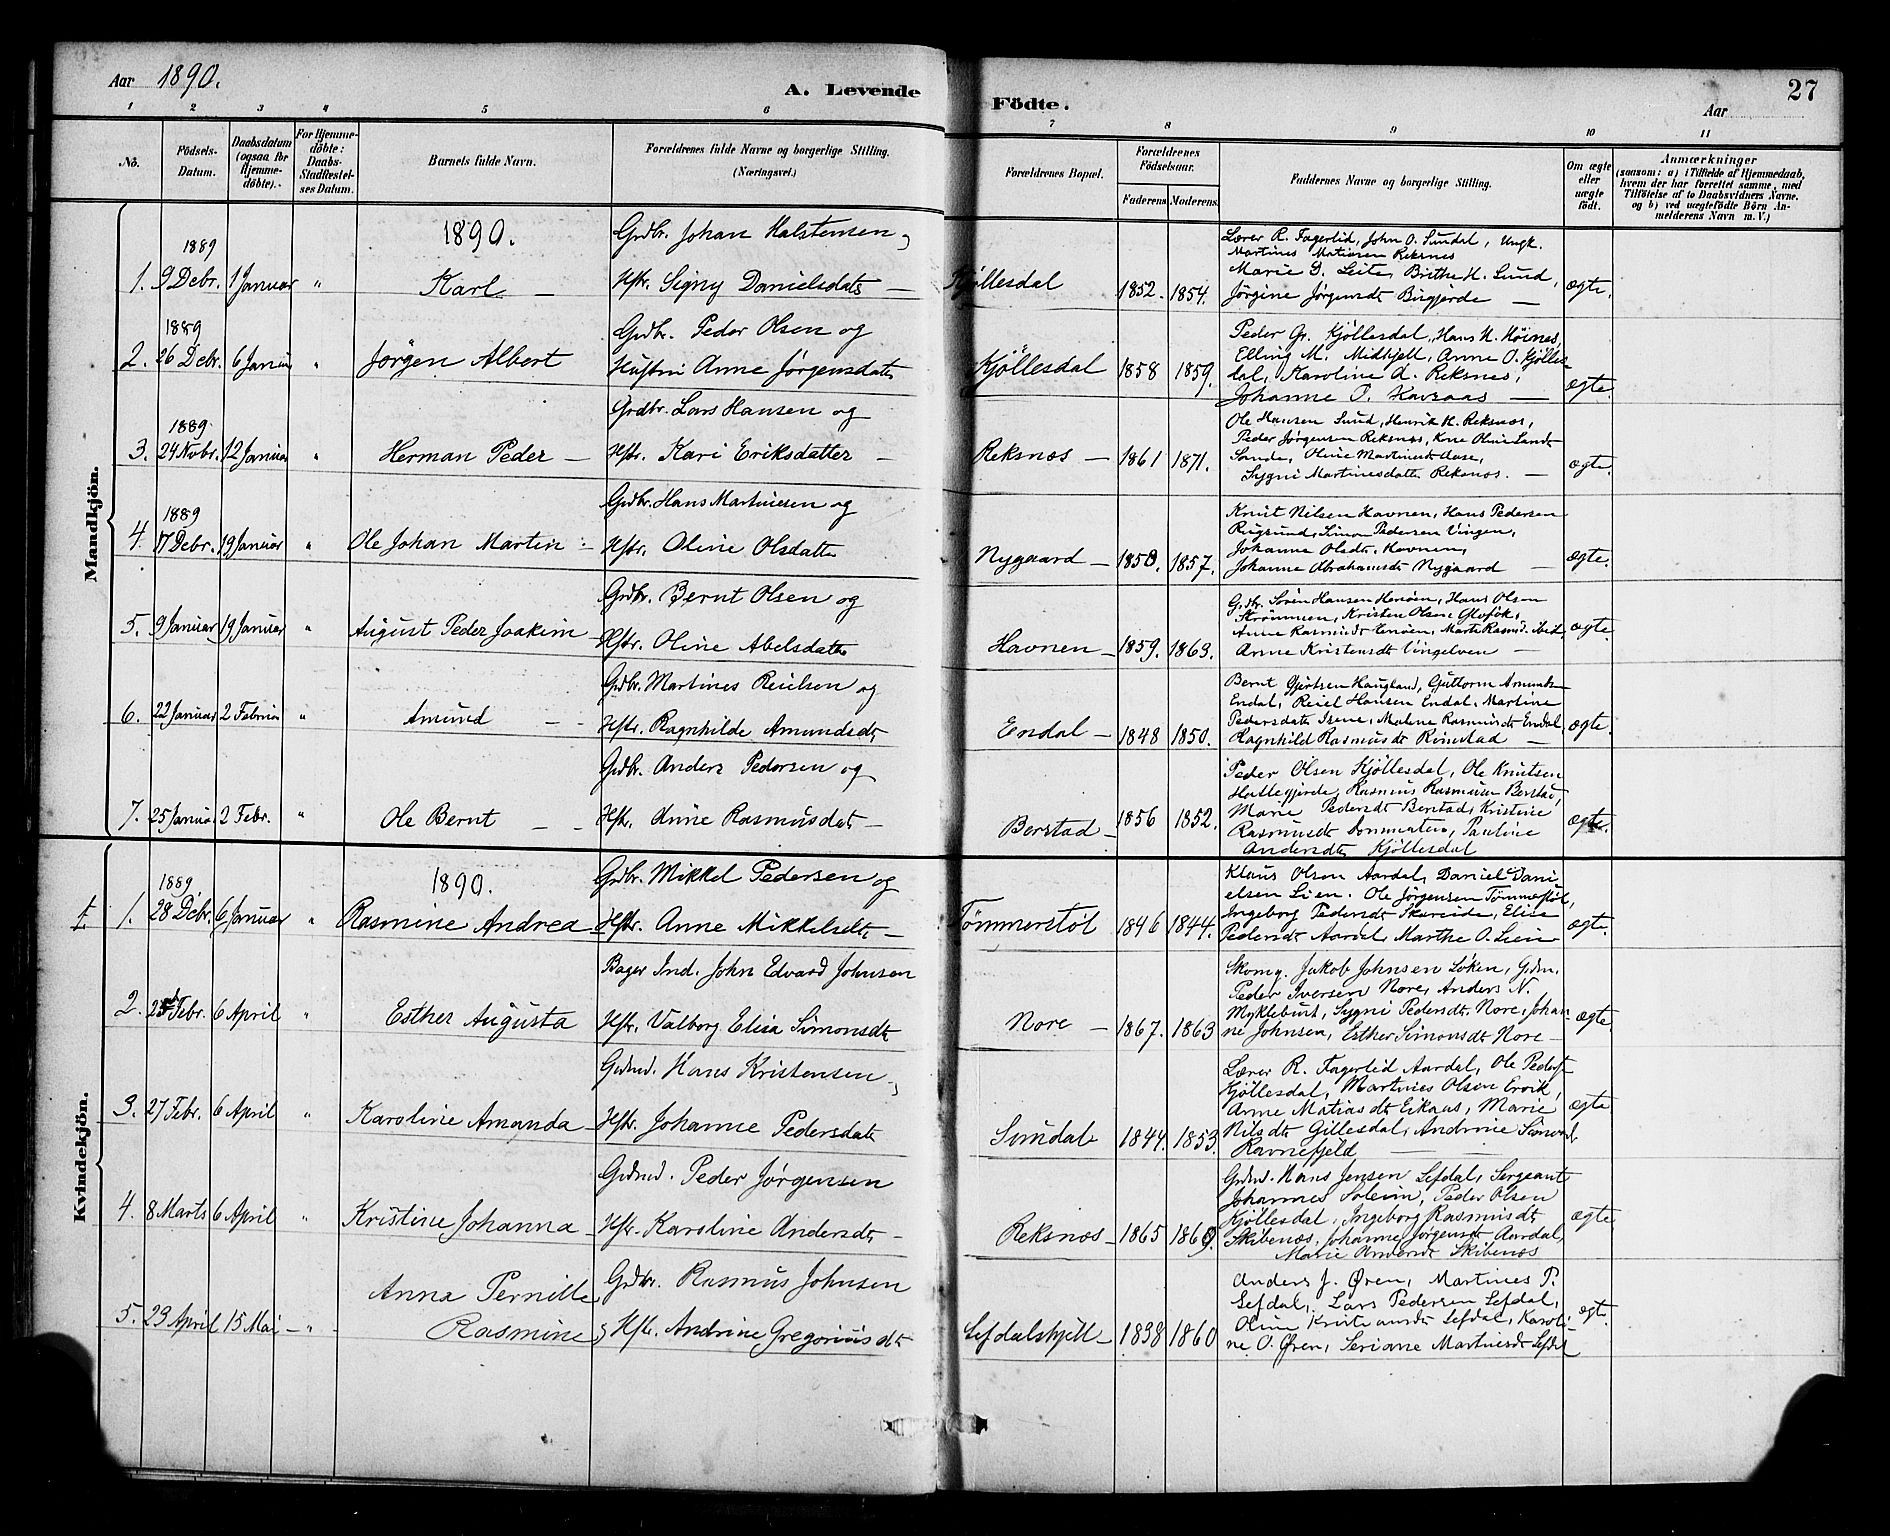 Aar 1890.
A. Levende Födte.
Aar
27
1 2 3 4 5 6 7 8 9 10 11
No.
Födsels-Datum.
Daabsdatum (ogsaa for Hjemme-döbte).
For Hjemme-döbte: Daabs-Stadfæstel-ses Datum.
Barnets fulde Navn.
Forældrenes fulde Navne og borgerlige Stilling. (Næringsvei.)
Forældrenes Bopæl.
Forældrenes Födselsaar.
Faderens. Moderens.
Faddernes Navne og borgerlige Stilling.
Om ægte eller uægte födt.
Anmærkninger
(saasom: a) i Tilfælde af Hjemmedaab,
hvem der har forrettet samme, med
Tilföielse af to Daabsvidners Navne.
og b) ved uægtefödte Börn An-
melderens Navn m. V.)
Mandkjön.
1890.
1889
1. 9 Debr. 1 Januar " Karl —
Grdbr. Johan Halstensen,
Hstr. Signy Danielsdatr —
Kjöllesdal 1852. 1854.
Lærer R. Fagerlid, John O. Sindal, Ungk.
Martines Matiasen Reksnes
Marie D. Leite, Brithe H. Lund,
Jørgine Jørgensdt Birgjerde —
ægte.
1889
2. 26 Debr. 6 Januar " Jørgen Albert
Grdbr. Peder Olsen og
Hustru Anne Jørgensdatr
Kjöllesdal 1858 1859.
Peder Gr. Kjöllesdal, Hans H. Höines,
Elling M. Midhjell, Anne O. Kjölles-
dal, Karoline A. Reksnes,
Johanne P. Havraas —
ægte.
1889
3. 24 Novbr. 12 Januar " Herman Peder —
Grdbr. Lars Hansen og
Hstr. Kari Eriksdatter —
Reksnæs — 1861 1871.
Ole Hansen Sund, Henrik H. Reksnæs,
Peder Jørgensen Reksnæs, Kone Oline Lands
Sande, Oline Martinusdt Aase,
Sygni Martinesdatr Reksnæs. —
ægte.
1889
4. 17 Debr. 19 Januar " Ole Johan Martin
Grdbr. Hans Martinesen og
Hstr. Oline Olsdatter
Nygaard — 1850. 1857.
Knut Nilsen Havnen, Hans Pedersen
Rugsund, Simon Pedersen Vingen,
Johanne Olsdt. Havnen,
Johanne Abrahamsdt Nygaard —
ægte.
5. 9 Januar 19 Januar " August Peder Joakim
Grdbr. Bernt Olsen og
Hstr. Oline Abelsdatr
Havnen — 1859. 1863.
Grdbr. Sören Hansen Henöen, Hans Olsen
Strömmen, Kristen Olsen
Anne Rasmusdt Henöen, Marte Rasmd. ibid,
Anne Kristensdt Vingelven —
ægte.
6. 22 Januar 2 Februar " Amund — —
Grdbr. Martines Reielsen og
Hstr. Ragnhilde Amundsdt
Endal — 1848 1850.
Bernt Gjertsen Haugland, Guttorm Amunds.
Endal, Reiel Hansen Endal, Martine
Pedersdatr Isene, Malene Rasmusdt Endal,
Ragnhild Rasmusdt Rimstad —
ægte.
7. 25 Januar 2 Febr. " Ole Bernt — —
Grdbr. Anders Pedersen og
Hstr. Anne Rasmusdatr —
Berstad — 1856 1852.
Peder Olsen Kjöllesdal, Ole Knutsen
Hattegjerde, Rasmus Rasmusen Berstad,
Marie Pedersdt Berstad, Kristine
Rasmusdt Pauline
Andersdtr Kjöllesdal
ægte.
Kvindekjön.
1890.
1889
1. 28 Debr. 6 Januar " Rasmine Andrea —
Grdbr. Mikkel Pedersen og
Hstr. Anne Mikkelsdt —
Tömmerstöl 1846 1844.
Klaus Olsen Aardal, Daniel Dani-
elsen Lien. Ole Jørgensen Tömmerstöl,
Ingeborg Pedersdt Skareide, Elise
Pedersdt Aardal, Marthe O. Lien
ægte.
2. 25 Febr. 6 April " Esther Augusta
Bager Ind. John Edvard Johnsen
Hstr. Valborg Elisa Simonsdt
Nore — 1867. 1863
Skomg. Jakob Johnsen Löken, Grdm.
Peder Iversen Nore, Anders N.
Myklebust, Sygni Pedersdt Nore, Johan-
ne Johnsen, Esther Simonsdt Nore —
ægte
3. 27 Febr. 6 April " Karoline Amanda —
Grdmd. Hans Kristensen,
Hstr. Johanne Pedersdatr
Sindal 1844. 1853.
Lærer R. Fagerlid Aardal, Ole Peders.
Kjöllesdal, Martines Olsen Ervik,
Anne Matiasdt Eikaas, Marie
Nilsdt Gillesdal, Andrine Simonsd.
Ravnefjeld — —
ægte
4. 8 Marts 6 April " Kristine Johanna —
Grdmd. Peder Jørgensen
Hstr. Karoline Andersdt —
Reksnæs — 1865 1869.
Grdmd. Hans Jensen Lefdal, Sergeant
Johannes Soleim, Peder Olsen
Kjöllesdal, Ingeborg Rasmusdt
Skibenæs, Johanne Jørgensdt Aardal,
Marie Andersdt Skibenæs
ægte
5. 23 April 15 Mai — " Anna Pernille
Rasmine
Grdbr. Rasmus Johnsen
Hstr. Andrine Gregoriusdt
Lefdalshjell — 1838 1860
Anders J. Øren, Martines P.
Lefdal, Lars Pedersen Lefdal,
Oline Kristiansdt Lefdal, Karoli-
ne O. Øren, Seriane Martinesdt Lefdal
ægt.